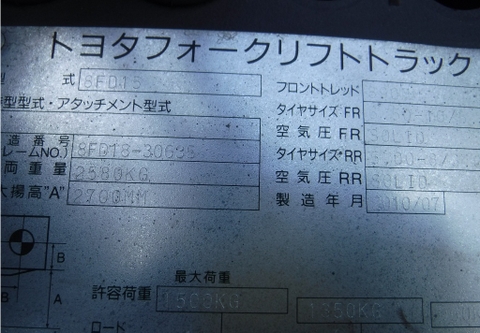 トヨタフォークリフトトラック
型 式 8FD15
型型式・アタッチメント型式
造番号
レームNO.)
両重量 2580KG
大揚高"A" 2700MM
フロントトレッド
タイヤサイズ FR
空気圧 FR SOLID
タイヤサイズ RR
空気圧 RR SOLID
製造年月 2010/07
B
B
A
A
最大荷重
許容荷重 1500KG 1350KG
ロード